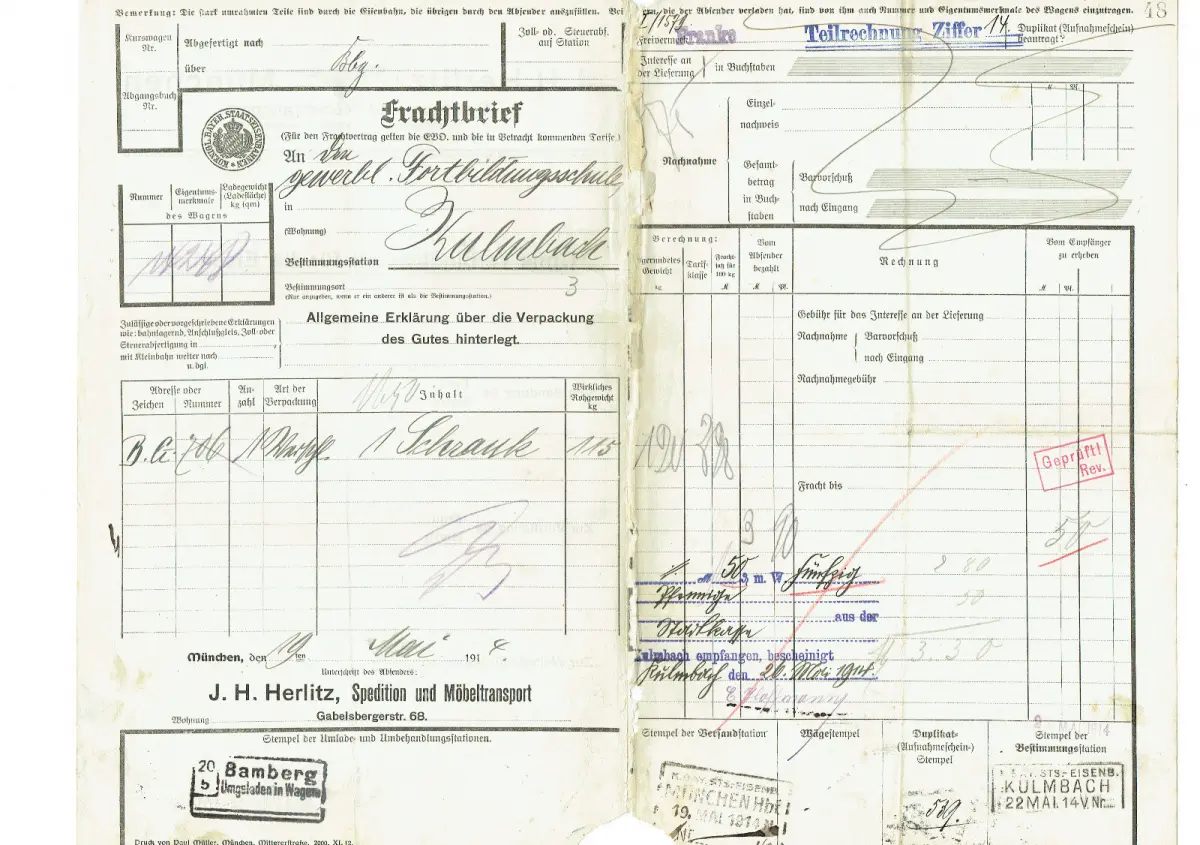 Bemerkung: Die stark umrahmten Teile sind durch die Eisenbahn, die übrigen durch den Absender auszufüllen.
der Absender verladen hat, sind von ihm auch Nummer und Eigentumsmerkmale des Wagens einzutragen.
48
Kurswagen
Nr.
Abgefertigt nach
über
Bbg.
Zoll- od. Steuerabf.
auf Station
Abgangsbuch
Nr.
KÖNIGL. BAYER. STAATSEISENBAHNEN
Frachtbrief
(Für den Frachtvertrag gelten die EVO. und die in Betracht kommenden Tarife.)
An die
gewerbl. Fortbildungsschule
in
(Wohnung)
Kulmbach
Bestimmungsstation
Bestimmungsort
(Nur anzugeben, wenn er ein anderer ist als die Bestimmungsstation.)
3
Nummer
Eigentums-
merkmale
Ladegewicht
(Ladefläche)
kg (qm)
des Wagens
Zulässige oder vorgeschriebene Erklärungen
wie: bahnlagernd, Anschlußgleis, Zoll- oder
Steuerabfertigung in
mit Kleinbahn weiter nach
u. dgl.
Allgemeine Erklärung über die Verpackung
des Gutes hinterlegt.
Adresse oder
Zeichen Nummer
An-
zahl
Art der
Verpackung
Inhalt
Wirkliches
Rohgewicht
kg
B. G. 706 1 1 Schrank 115
München, den 19ten Mai 1914.
Unterschrift des Absenders:
J. H. Herlitz, Spedition und Möbeltransport
Wohnung Gabelsbergerstr. 68.
Stempel der Umlade- und Umbehandlungsstationen.
20
5
Bamberg
Umgeladen in Wagen
Druck von Paul Müller, München, Mittererstraße. 2000. XI. 12.
Freivermerk
Franke
Teilrechnung Ziffer 14.
Duplikat (Aufnahmeschein)
beantragt?
Interesse an
der Lieferung
in Buchstaben
Nachnahme
Einzel-
nachweis
Gesamt-
betrag
in Buch-
staben
Barvorschuß
nach Eingang
M Pf.
Berechnung:
Gewicht
kg
Tarif-
klasse
Fracht-
satz für
100 kg
M
Vom
Absender
bezahlt
M Pf.
Rechnung
Vom Empfänger
zu erheben
M Pf.
Gebühr für das Interesse an der Lieferung
Nachnahme
Barvorschuß
nach Eingang
Nachnahmegebühr
120
Geprüft!
Rev.
Fracht bis
3 90
50
M 50 m. W. Fünfzig
Pfennige
aus der
Stadtkasse
Kulmbach empfangen, bescheinigt
Kulmbach den 26. Mai 1914.
2 80
50
M 3.30
Stempel der Versandstation
Wägestempel
Duplikat-
(Aufnahmeschein-)
Stempel
Stempel der
Bestimmungsstation
K. BAY. STS.-EISENB.
MÜNCHEN Hbf
19. MAI. 1914
Nr.
539.
K. BAY. STS.-EISENB.
KULMBACH
22 MAI. 14 V. Nr.